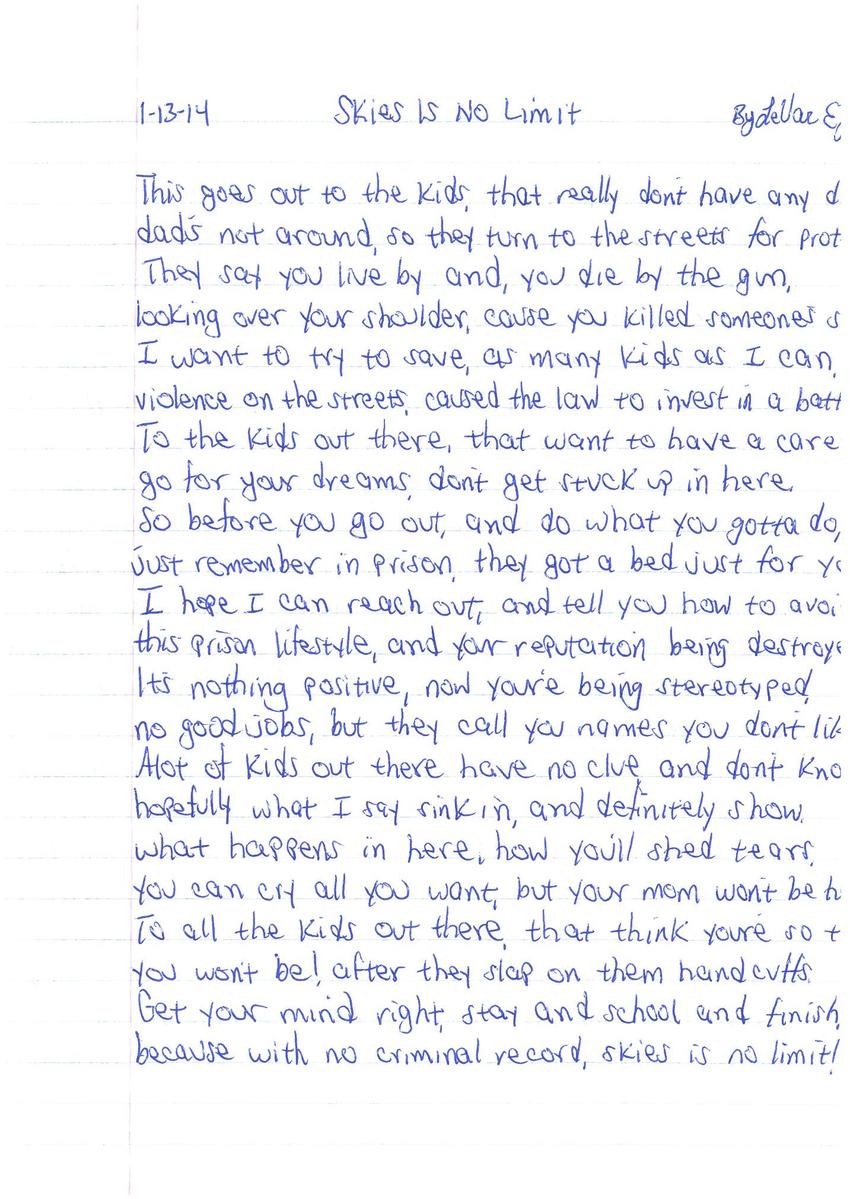 1-13-14 Skies Is No Limit By LeVar E
This goes out to the kids, that really don't have any d
dad's not around, so they turn to the streets for prot
They say you live by and, you die by the gun,
looking over your shoulder, cause you killed someone's s
I want to try to save, as many kids as I can,
violence on the streets, caused the law to invest in a batt
To the kids out there, that want to have a care
go for your dreams, don't get stuck up in here.
So before you go out, and do what you gotta do,
just remember in prison, they got a bed just for yo
I hope I can reach out, and tell you how to avoi
this prison lifestyle, and your reputation being destroye
It's nothing positive, now you're being stereotyped,
no good jobs, but they call you names you don't lik
Alot of kids out there have no clue, and don't kno
hopefully what I say sink in, and definitely show.
what happens in here, how you'll shed tears,
you can cry all you want, but your mom won't be h
To all the kids out there, that think you're so t
you won't be! after they slap on them handcuffs.
Get your mind right, stay and school and finish,
because with no criminal record, skies is no limit!